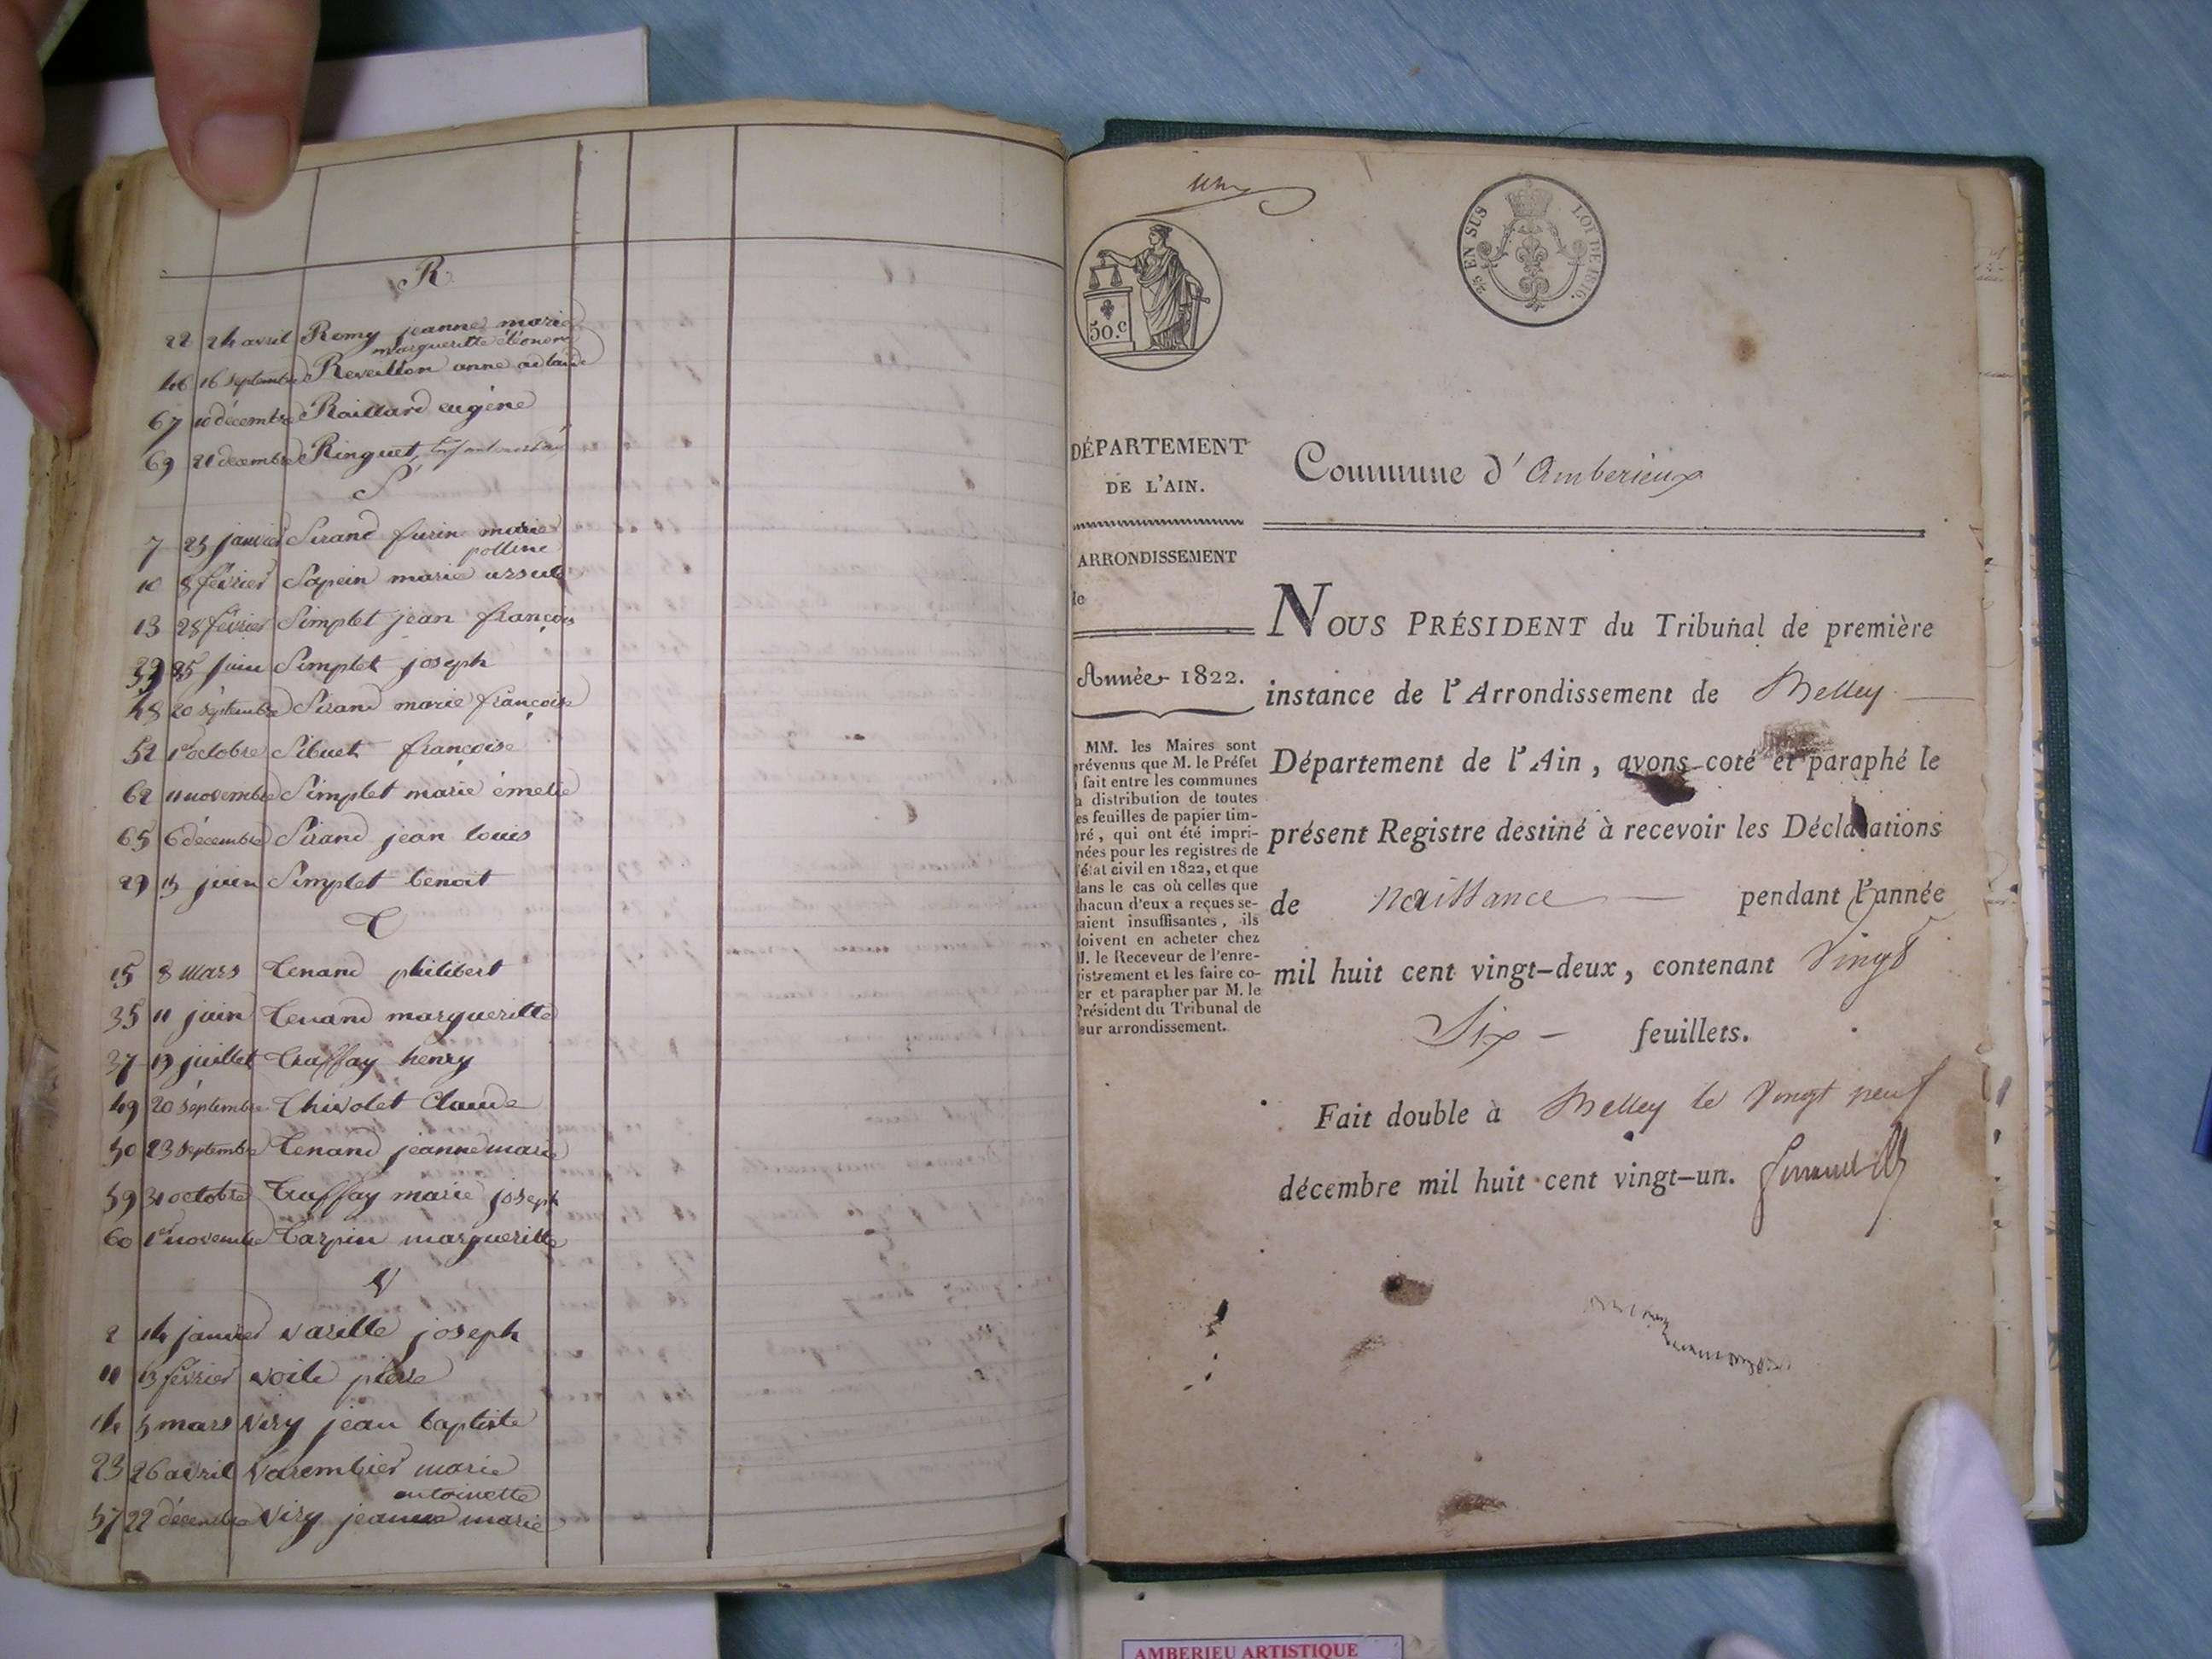 R
22 24 avril Remy jeanne marie
margueritte éléonore
46 16 septembre Reveillon anne
67 10 décembre Raillard eugène
69 21 decembre Ringuet,
S
7 23 janvier Sirand marie
polline
10 8 février Sapein marie ursule
13 28 février Simplet jean françois
25 juin Simplet joseph
48 20 septembre Sirand marie françoise
52 1er octobre Sibuet françoise
62 11 novembre Simplet marie émelie
65 6 décembre Sirand jean louis
29 13 juin Simplet benoit
T
15 8 mars Tenand philibert
35 11 juin Tenand margueritte
37 13 juillet Truffay henry
49 20 septembre Thivolet Claude
50 23 septembre Tenand jeanne marie
59 31 octobre Truffay marie joseph
60 1er novembre Tarpin margueritte
V
2 14 janvier varille joseph
11 13 février voile pierre
14 5 mars viry jean baptiste
23 26 avril varembier marie
antoinette
57 22 décembre viry jeanne marie
25 EN SUS LOI DE 1816.
50.c
DÉPARTEMENT
DE L'AIN.
Commune d'Amberieux
ARRONDISSEMENT
de
Année 1822.
MM. les Maires sont
prévenus que M. le Préfet
fait entre les communes
la distribution de toutes
les feuilles de papier tim-
bré, qui ont été impri-
mées pour les registres de
l'état civil en 1822, et que
dans le cas où celles que
chacun d'eux a reçues se-
raient insuffisantes, ils
doivent en acheter chez
M. le Receveur de l'enre-
gistrement et les faire co-
ter et parapher par M. le
Président du Tribunal de
leur arrondissement.
NOUS PRÉSIDENT du Tribunal de première
instance de l'Arrondissement de Belley
Département de l'Ain, avons coté et paraphé le
présent Registre destiné à recevoir les Déclarations
de naissance pendant l'année
mil huit cent vingt-deux, contenant Vingt
Six feuillets.
Fait double à Belley le Vingt neuf
décembre mil huit cent vingt-un.
AMBERIEU ARTISTIQUE